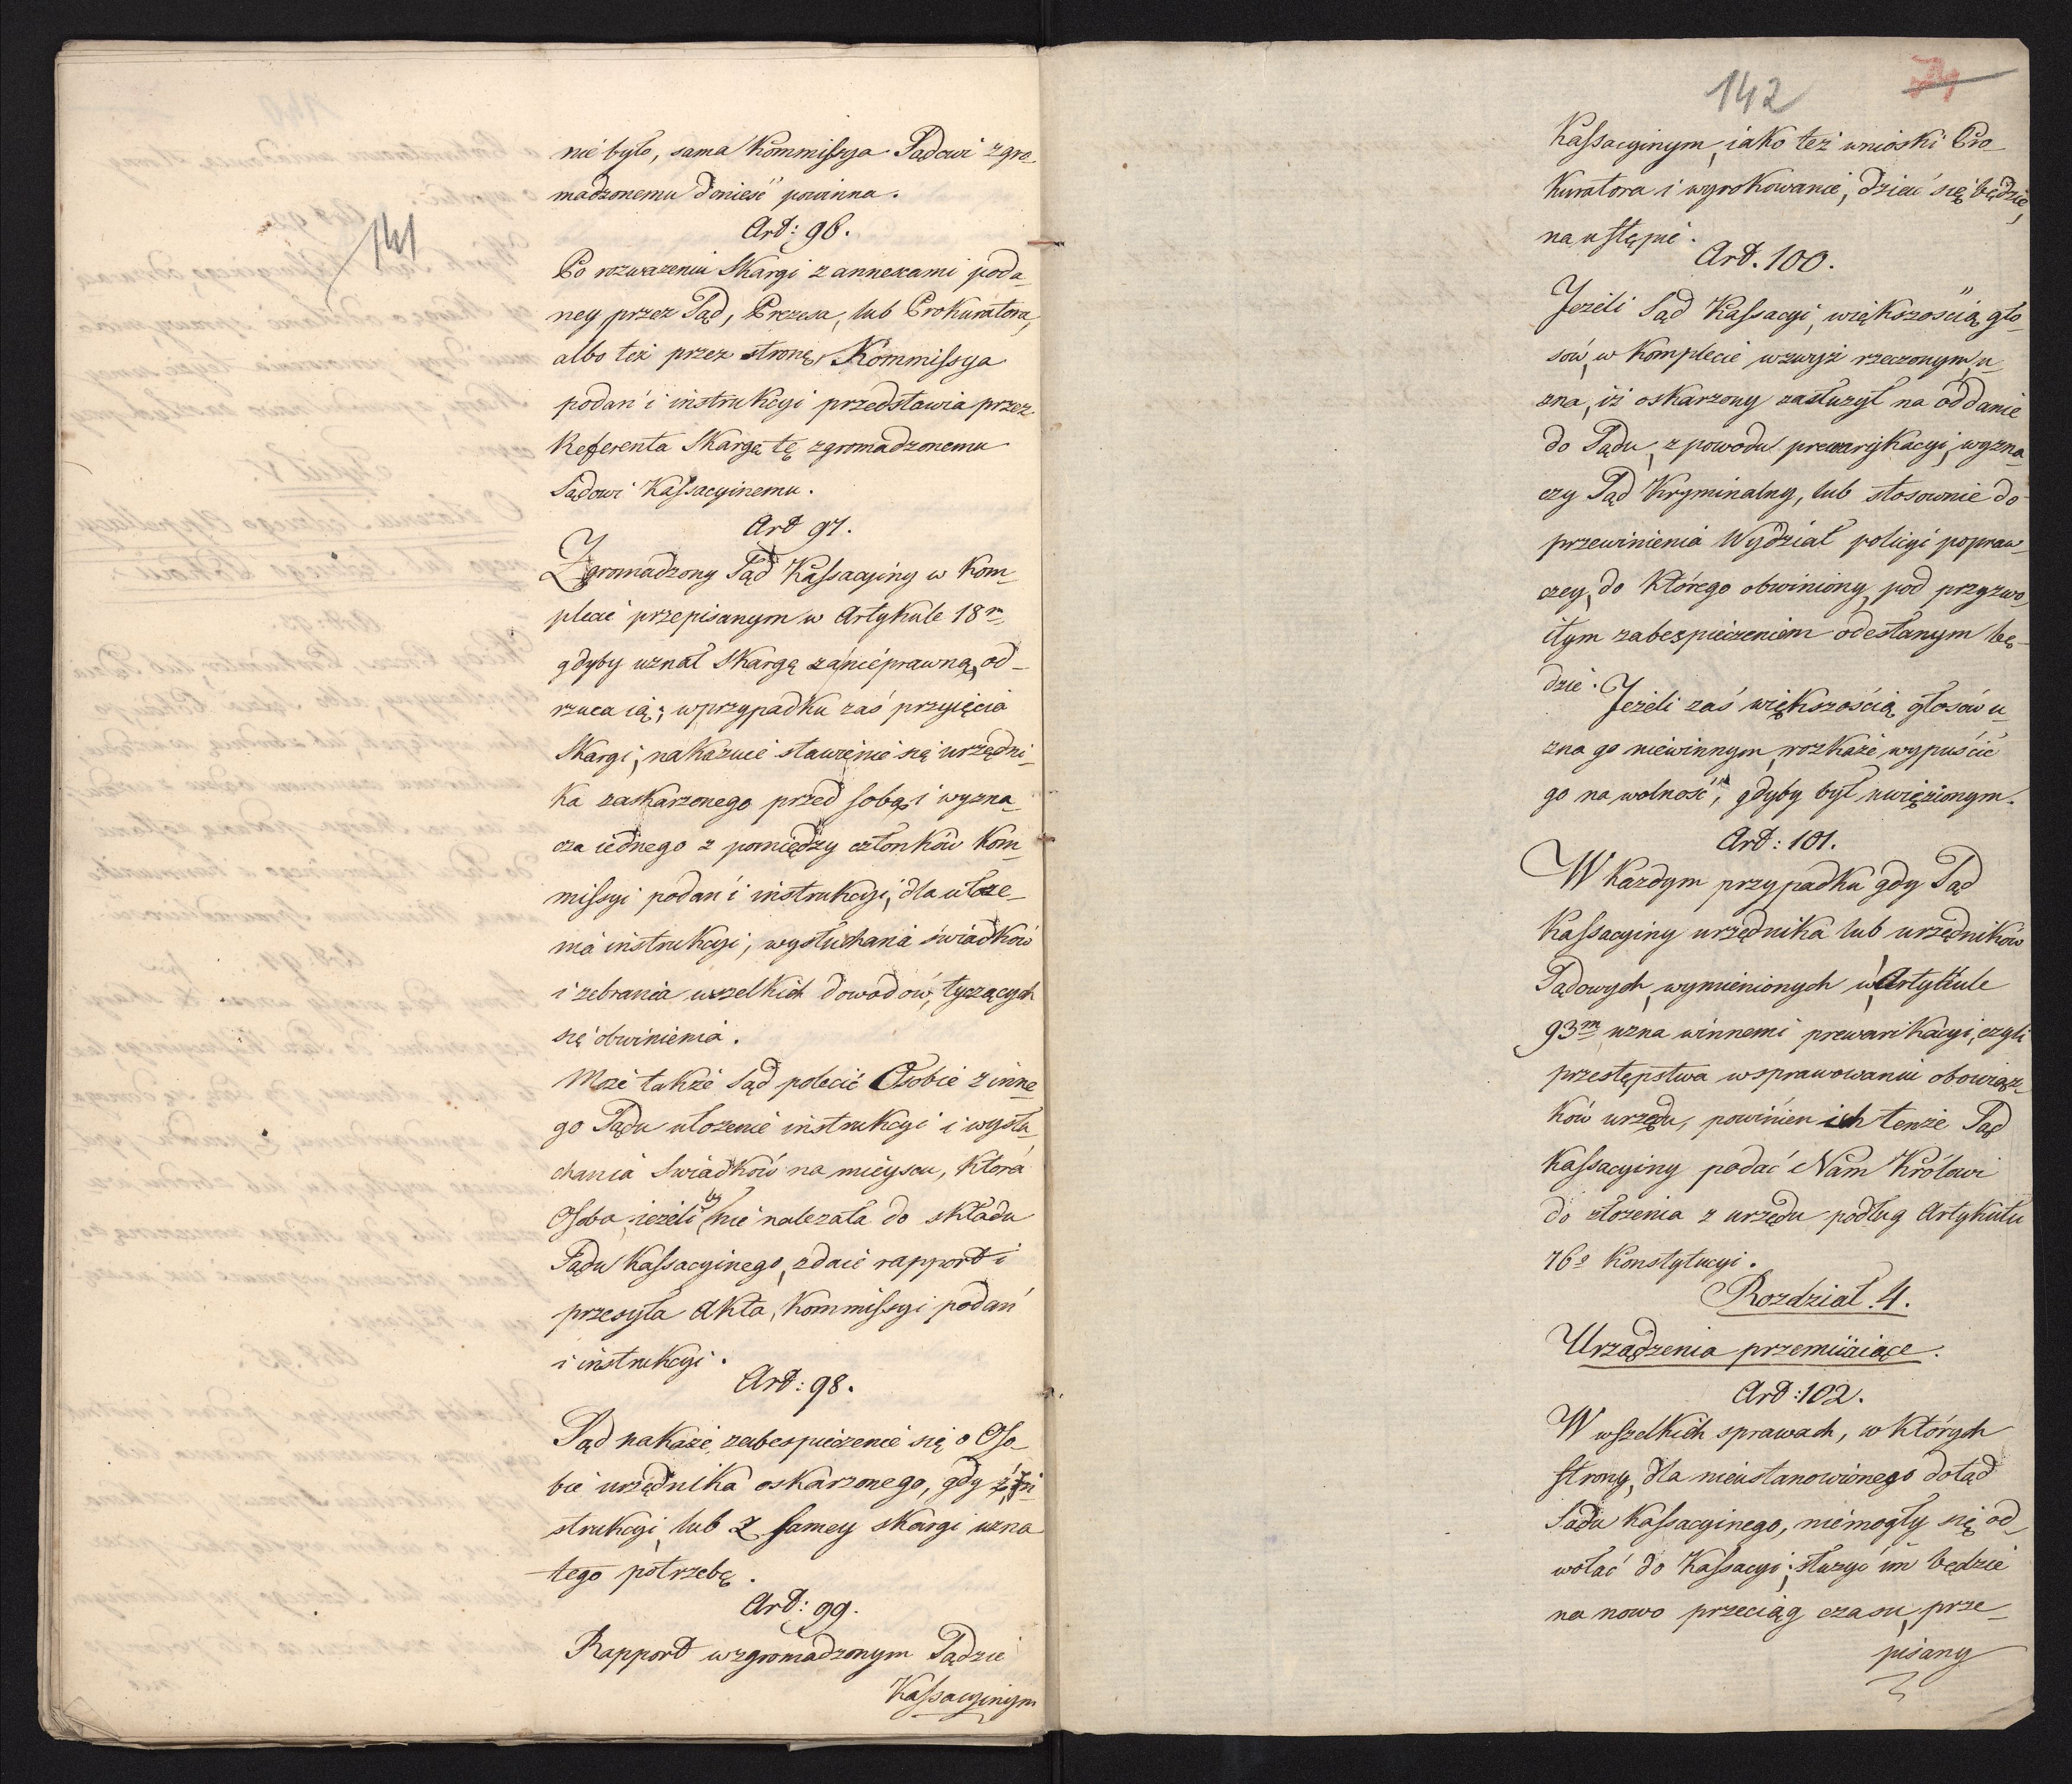 141
nie było, sama Kommissya Sądowi zgro-
madzonemu donieść powinna.
Art: 96.
Po rozważeniu Skargi z annexami poda-
ney przez Sąd, Prezesa, lub Prokuratora,
albo też przez stronę, Kommissya
podań i instrukcyi przedstawia przez
Referenta Skargę tę zgromadzonemu
Sądowi Kassacyinemu.
Art 97.
Zgromadzony Sąd Kassacyiny w Kom-
plecie przepisanym w Artykule 18m
gdyby uznał Skargę za nieprawną, od-
rzuca ią; w przypadku zaś przyięcia
Skargi, nakazuie stawienie się urzędni-
ka zaskarzonego przed sobą, i wyzna-
cza iednego z pomiędzy członków Kom-
missyi podań i instrukcyi, dla ułoże-
nia instrukcyi, wysłuchania świadków
i zebrania wszelkich dowodów, tyczących
się obwinienia.
Może także Sąd polecić Osobie z inne-
go Sądu ułożenie instrukcyi i wysłu-
chania Swiadków na mieyscu, która
Osoba ieżeli by nie należała do składu
Sądu Kassacyinego, zdaie rapport i
przesyła Akta, Kommissyi podań
i instrukcyi.
Art: 98.
Sąd nakaże zabespieczenie się o Oso-
bie urzędnika oskarzonego, gdy z in-
strukcyi, lub z samey skargi uzna
tego potrzebę.
Art: 99.
Rapport w zgromadzonym Sądzie
Kassacyinym
142
Kassacyinym, iako też wnioski Pro-
kuratora i wyrokowanie, dziać się będzie,
na ustępie.
Art. 100.
Jeżeli Sąd Kassacyi, większością gło-
sów, w Komplecie wzwyż rzeczonym, u-
zna, iż oskarzony zasłużył na oddanie
do Sądu, z powodu prewarykacyi, wyzna-
czy Sąd Kryminalny, lub stosownie do
przewinienia Wydział policyi popraw-
czey, do którego obwiniony, pod przyzwo-
itym zabespieczeniem odesłanym bę-
dzie.
Jeżeli zaś większością głosów u-
zna go niewinnym, rozkaże wypuścić
go na wolność, gdyby był uwięzionym.
Art: 101.
W każdym przypadku gdy Sąd
Kassacyiny urzędnika lub urzędników
Sądowych, wymienionych w Artykule
93m uzna winnemi prewarikacyi, czyli
przestępstwa w sprawowaniu obowiąz-
ków urzędu, powinien ich tenże Sąd
Kassacyiny podać Nam Królowi
do złożenia z urzędu podług Artykułu
76o Konstytucyi.
Rozdział 4.
Urządzenia przemiiaiące.
Art: 102.
W wszelkich sprawach, w których
strony, dla nieustanowionego dotąd
Sądu Kassacyinego, nie mogły się od-
wołać do Kassacyi; służyć im będzie
na nowo przeciąg czasu, prze-
pisany